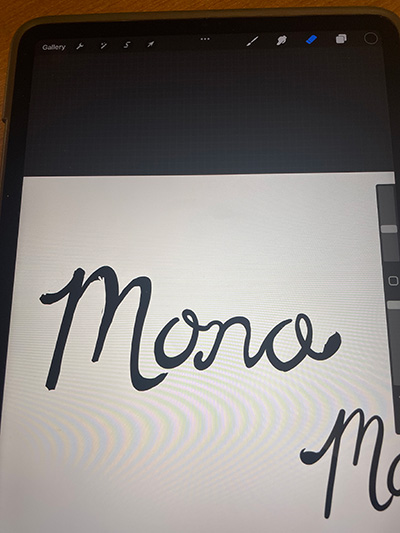 Gallery
Mona